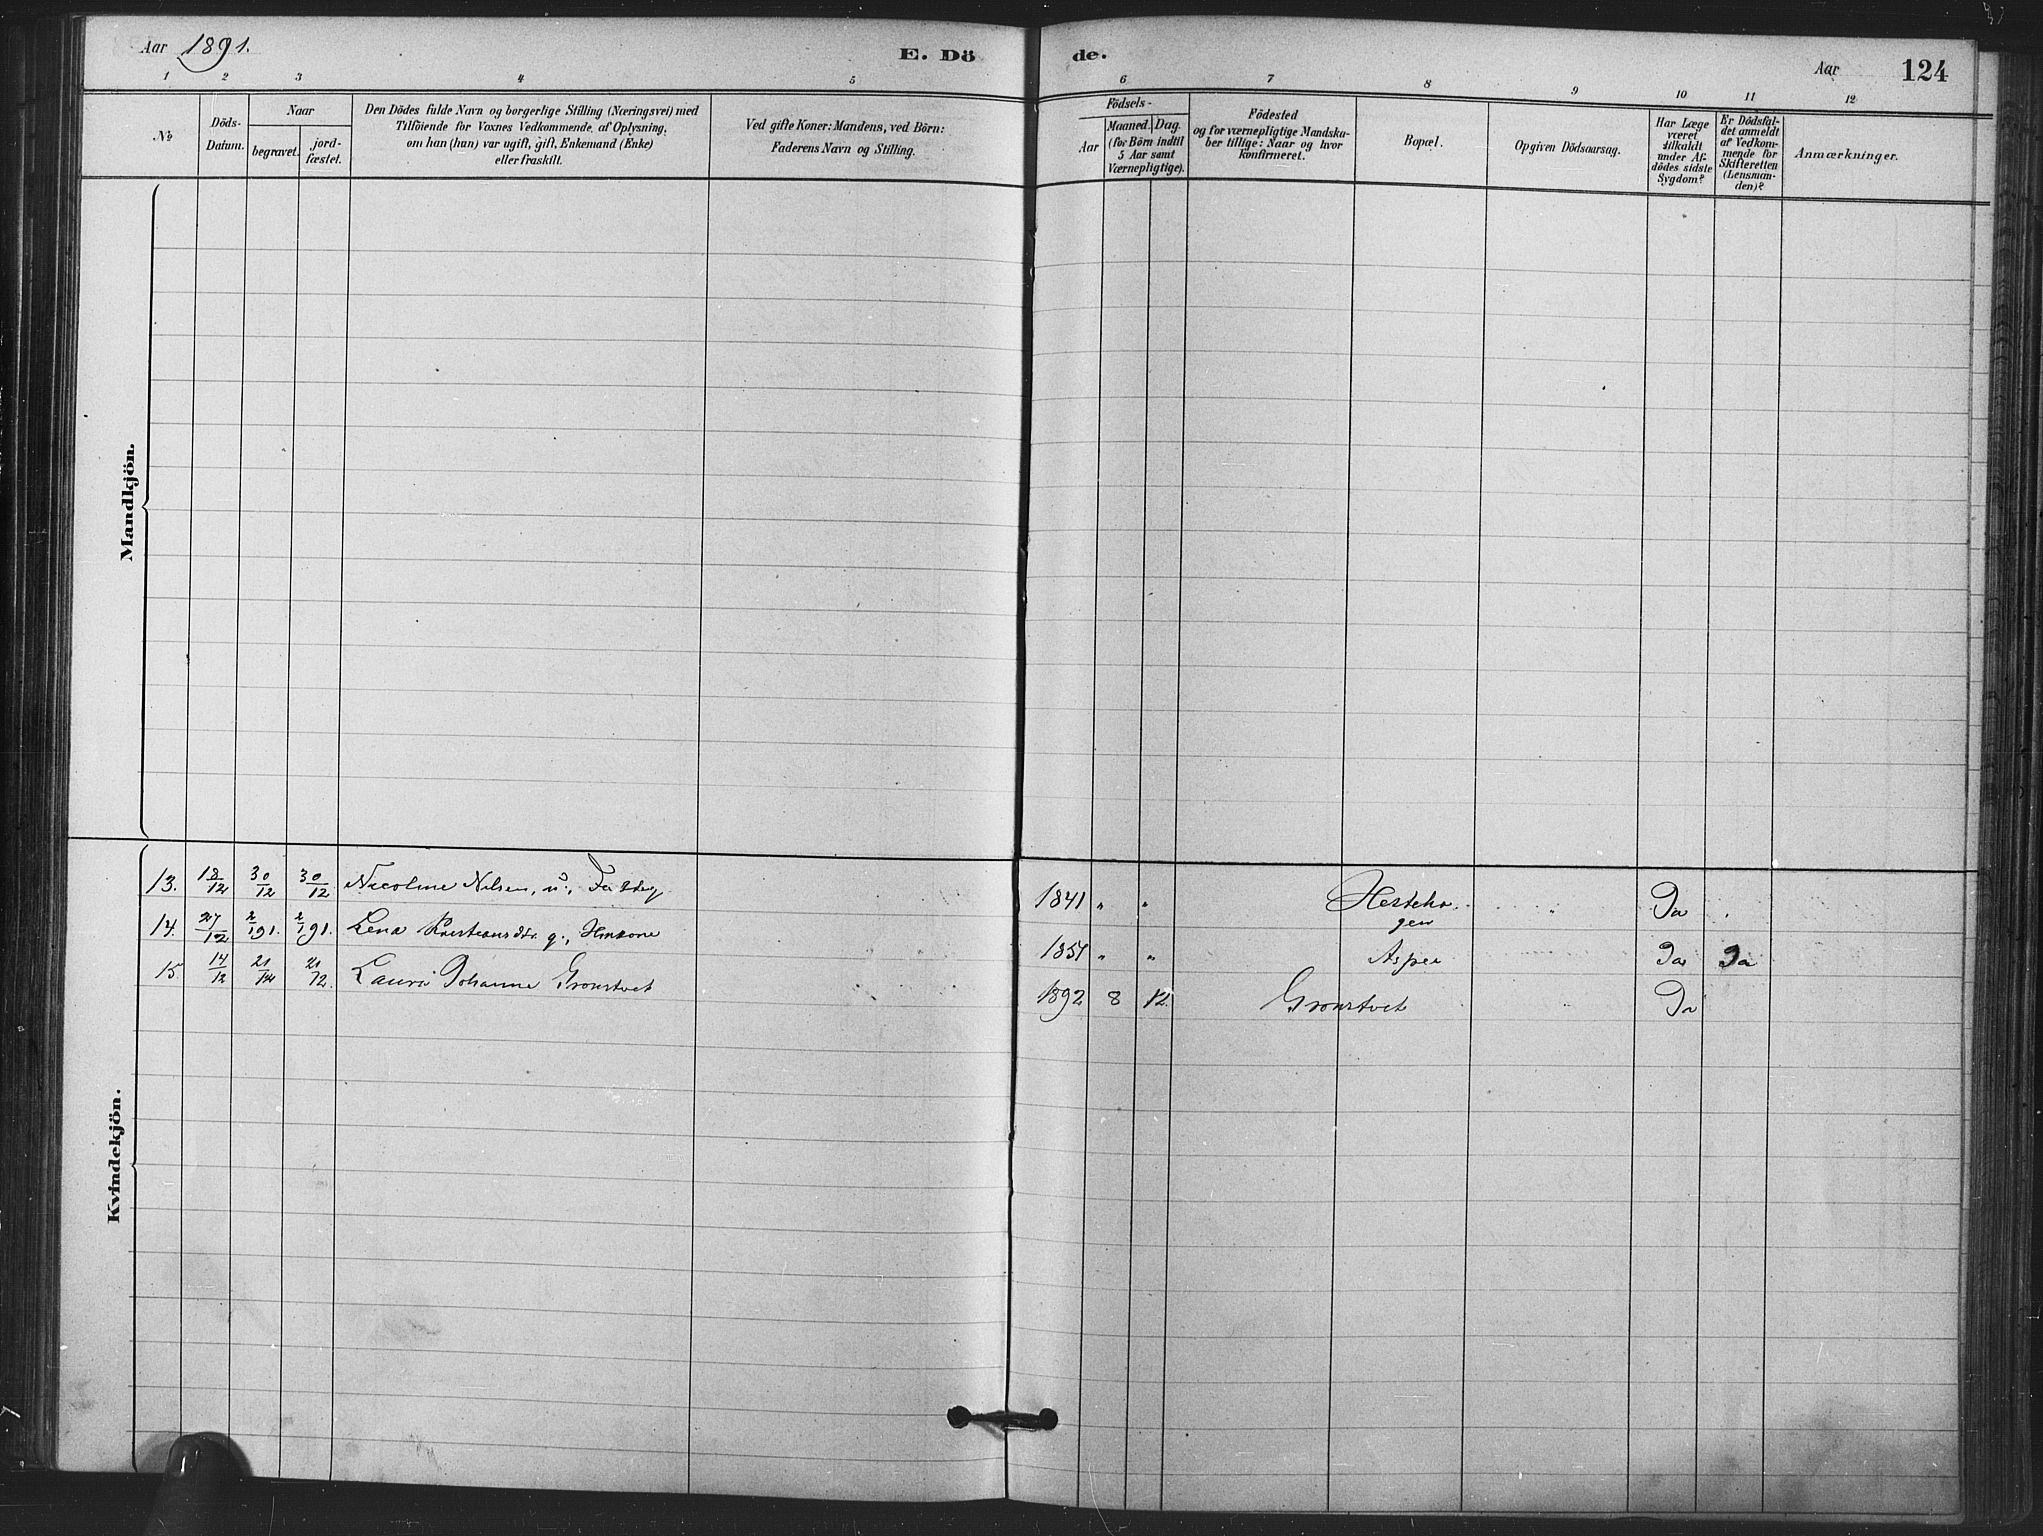 Aar 1891.
E. Dö
de.
Aar
124
1 2 3 4 5 6 7 8 9 10 11 12
№
Döds-
Datum.
Naar
begravet.
jord-
fæstet.
Den Dödes fulde Navn og borgerlige Stilling (Næringsvei) med
Tilföiende for Voxnes Vedkommende af Oplysning,
om han (hun) var ugift, gift, Enkemand (Enke)
eller fraskilt.
Ved gifte Koner: Mandens, ved Börn:
Faderens Navn og Stilling.
Födsels-
Aar
Maaned. Dag.
(for Börn indtil
5 Aar samt
Værnepligtige).
Födested
og for værnepligtige Mandska-
ber tillige: Naar og hvor
konfirmeret.
Bopæl.
Opgiven Dödsaarsag.
Har Læge
været
tilkaldt
under Af-
dödes sidste
Sygdom?
Er Dödsfal-
det anmeldt
af Vedkom-
mende for
Skifteretten
(Lensman-
den)?
Anmærkninger.
Mandkjön.
Kvindekjön.
13. 18/12 30/12 30/12 Nicoline Nilsen, u., 1841 " " Hesteha-
gen " Ja
14. 27/12 2/1 91. 2/1 91. Lena g., Huskone 1851 " " Asper Ja Ja
15. 14/12 21/12 21/12 Laura Johanne Gronstvet 1892 8 12. Gronstvet Ja